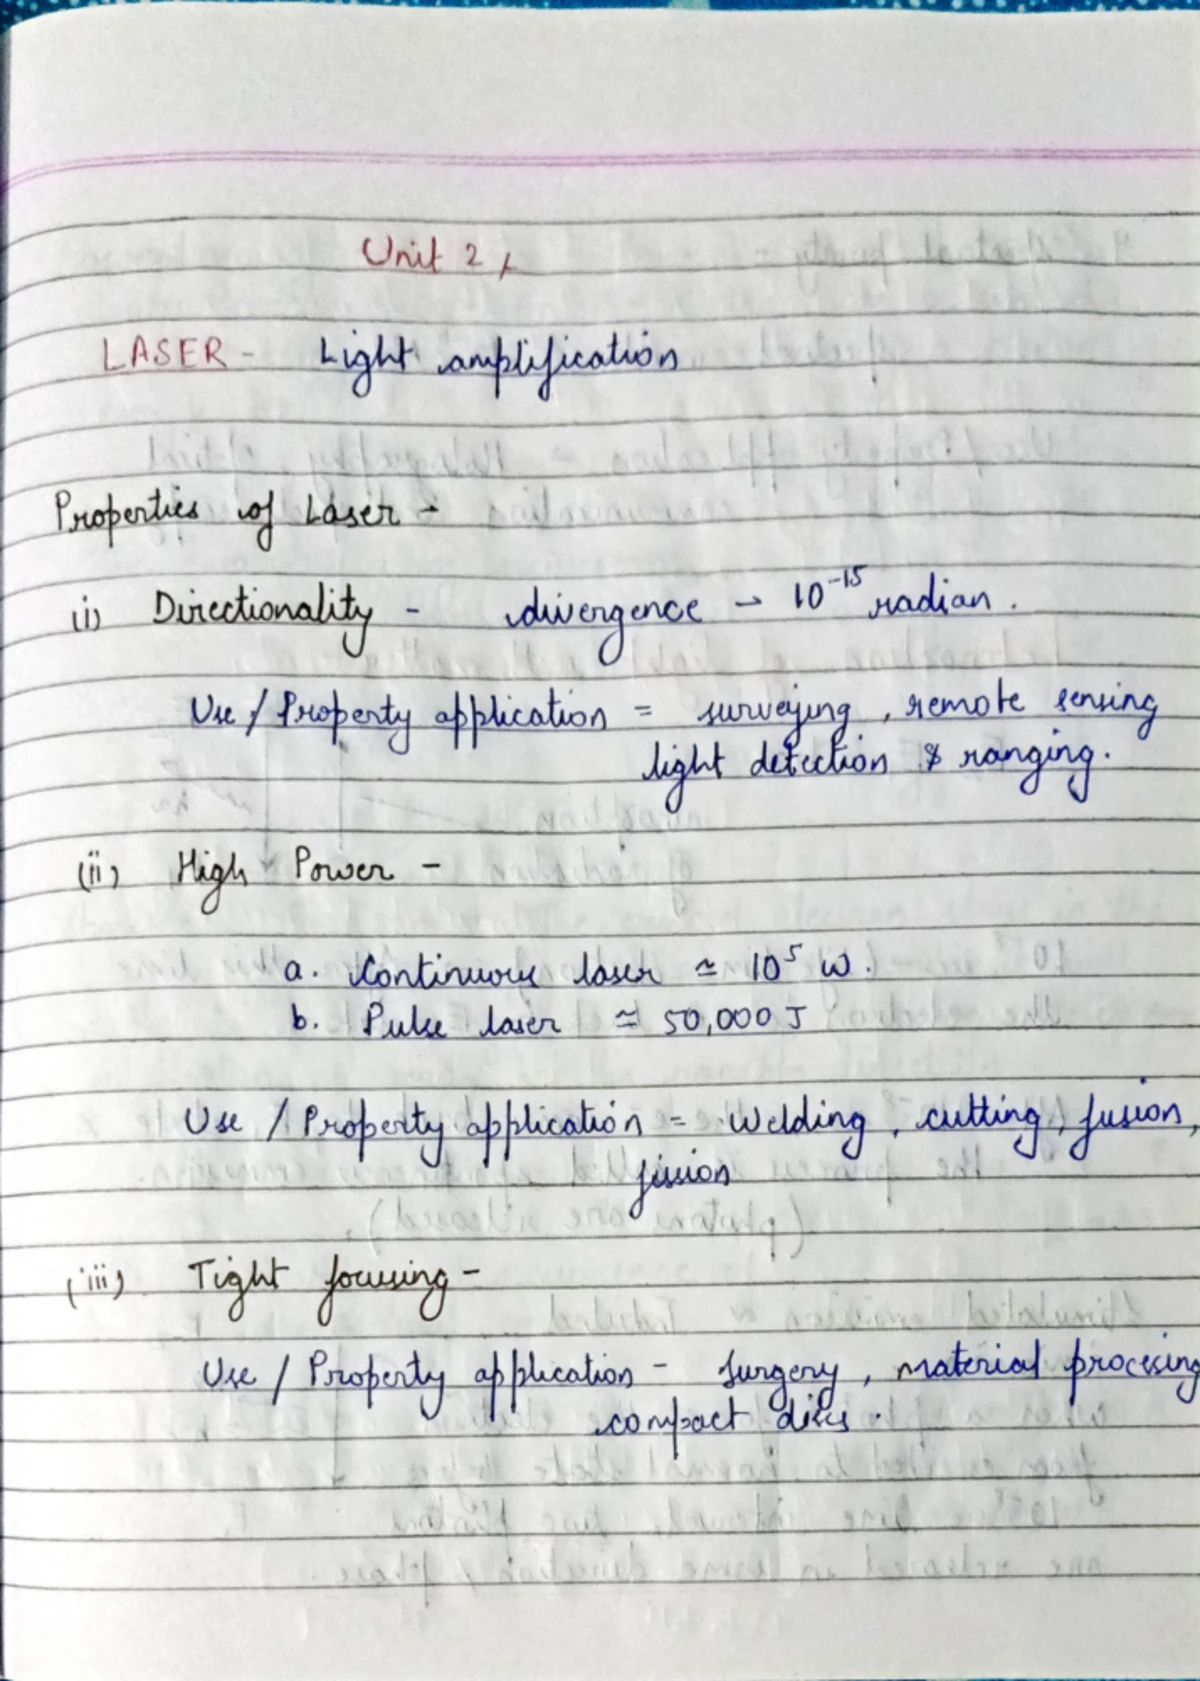 Unit 2
LASER - Light amplification
Properties of Laser -
(i) Directionality - divergence → 10⁻¹⁵ radian.
Use / Property application = surveying, remote sensing
light detection & ranging.
(ii) High Power -
a. Continuous laser ≃ 10⁵ W.
b. Pulse laser ≃ 50,000 J
Use / Property application = Welding, cutting, fusion,
fission
(iii) Tight focusing -
Use / Property application - surgery, material processing
compact discs.